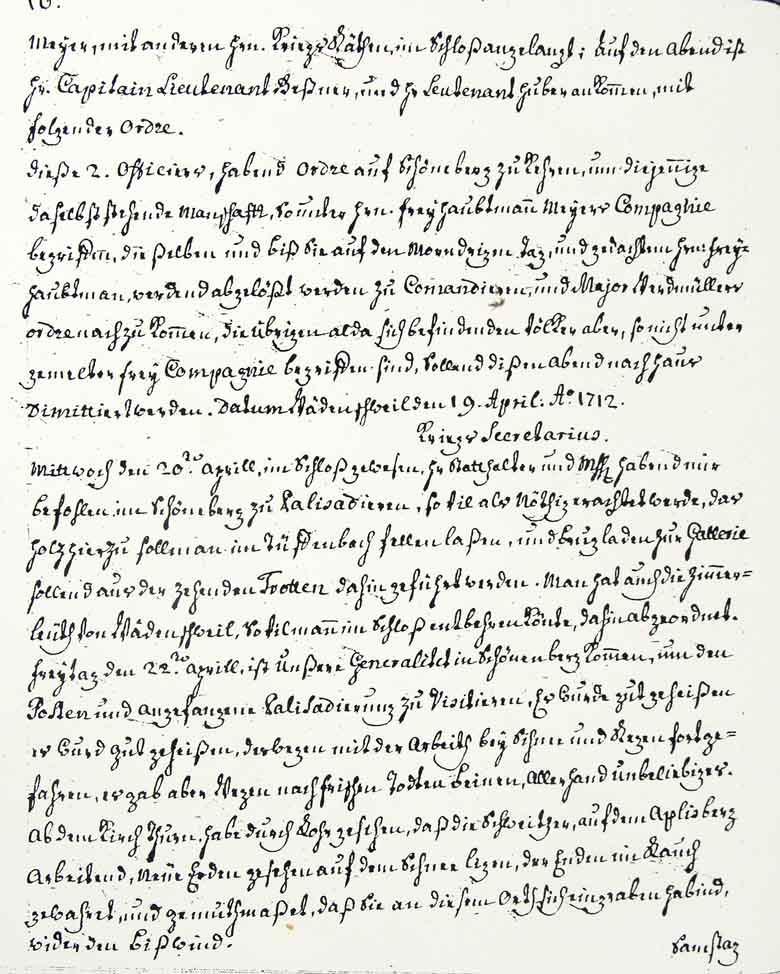 10.
Meyer, mit anderen Hrn. Kriegs Räthen, im Schloß angelangt; Auf den Abend ist
Hr. Capitain Lieutenant Geßner, und Hr Leutenant Huber ankommen, mit
folgender Ordre.
Dieße 2. Officiers, habend Ordre auf Schöneberg zu kehren, um diejenige
daselbst stehende Manschafft, so unter Hrn. freyhaubtmañ Meyers Compagnie
begriffen, dieselben und biß sie auf den Morndrigen Tag, und gedachtem Hrn: frey=
haubtman, werdend abgelößt werden zu Comandieren, und Major Werdmüllers
ordre nach zu kommen, die übrigen alda sich befindenden Völker aber, so nicht unter
gemelter frey Compagnie begriffen sind, sollend dißen Abend nach haus
Dimittiert werden. Datum Wädenschweil den 19. April: Aº 1712.
Kriegs Secretarius.
Mittwoch den 20.to Aprill, im Schloß gewesen, Hr Statthalter und habend mir
befohlen im Schöneberg zu Palisadieren, so vil als Nöthig erachtet werde, das
holz hierzu soll man im Tüffenbach fellen laßen, und Brugladen zur Gallerie
sollend aus der Zehenden Trotten dahin geführt werden. Man hat auch die Zimmer=
leüth von Wädenschweil, so vil mañ im Schloß entbehren könte, dahin abgeordnet.
freytag den 22.to Aprill, ist Unßere Generalitet in Schönenberg kommen, um den
Posten und angefangene Palisadierung zu Visitieren, Es wurde gut geheißen
es wurd gut geheißen, deswegen mit der Arbeith bey Schnee und Regen fortge=
fahren, es gab aber wegen nach frischen Todten Beinen, Allerhand unbeliebiges.
Ab dem Kirch Thurn, habe durch Rohr gesehen, daß die Schweitzer, auf dem Aplisberg
Arbeitend, Neüe Erden gesehen auf dem Schnee ligen, der Enden im Rauch
gewahret, und gemuthmaßet, daß Sie an diesem Orth sich eingraben habind,
wider den Bißwind.
Samstag